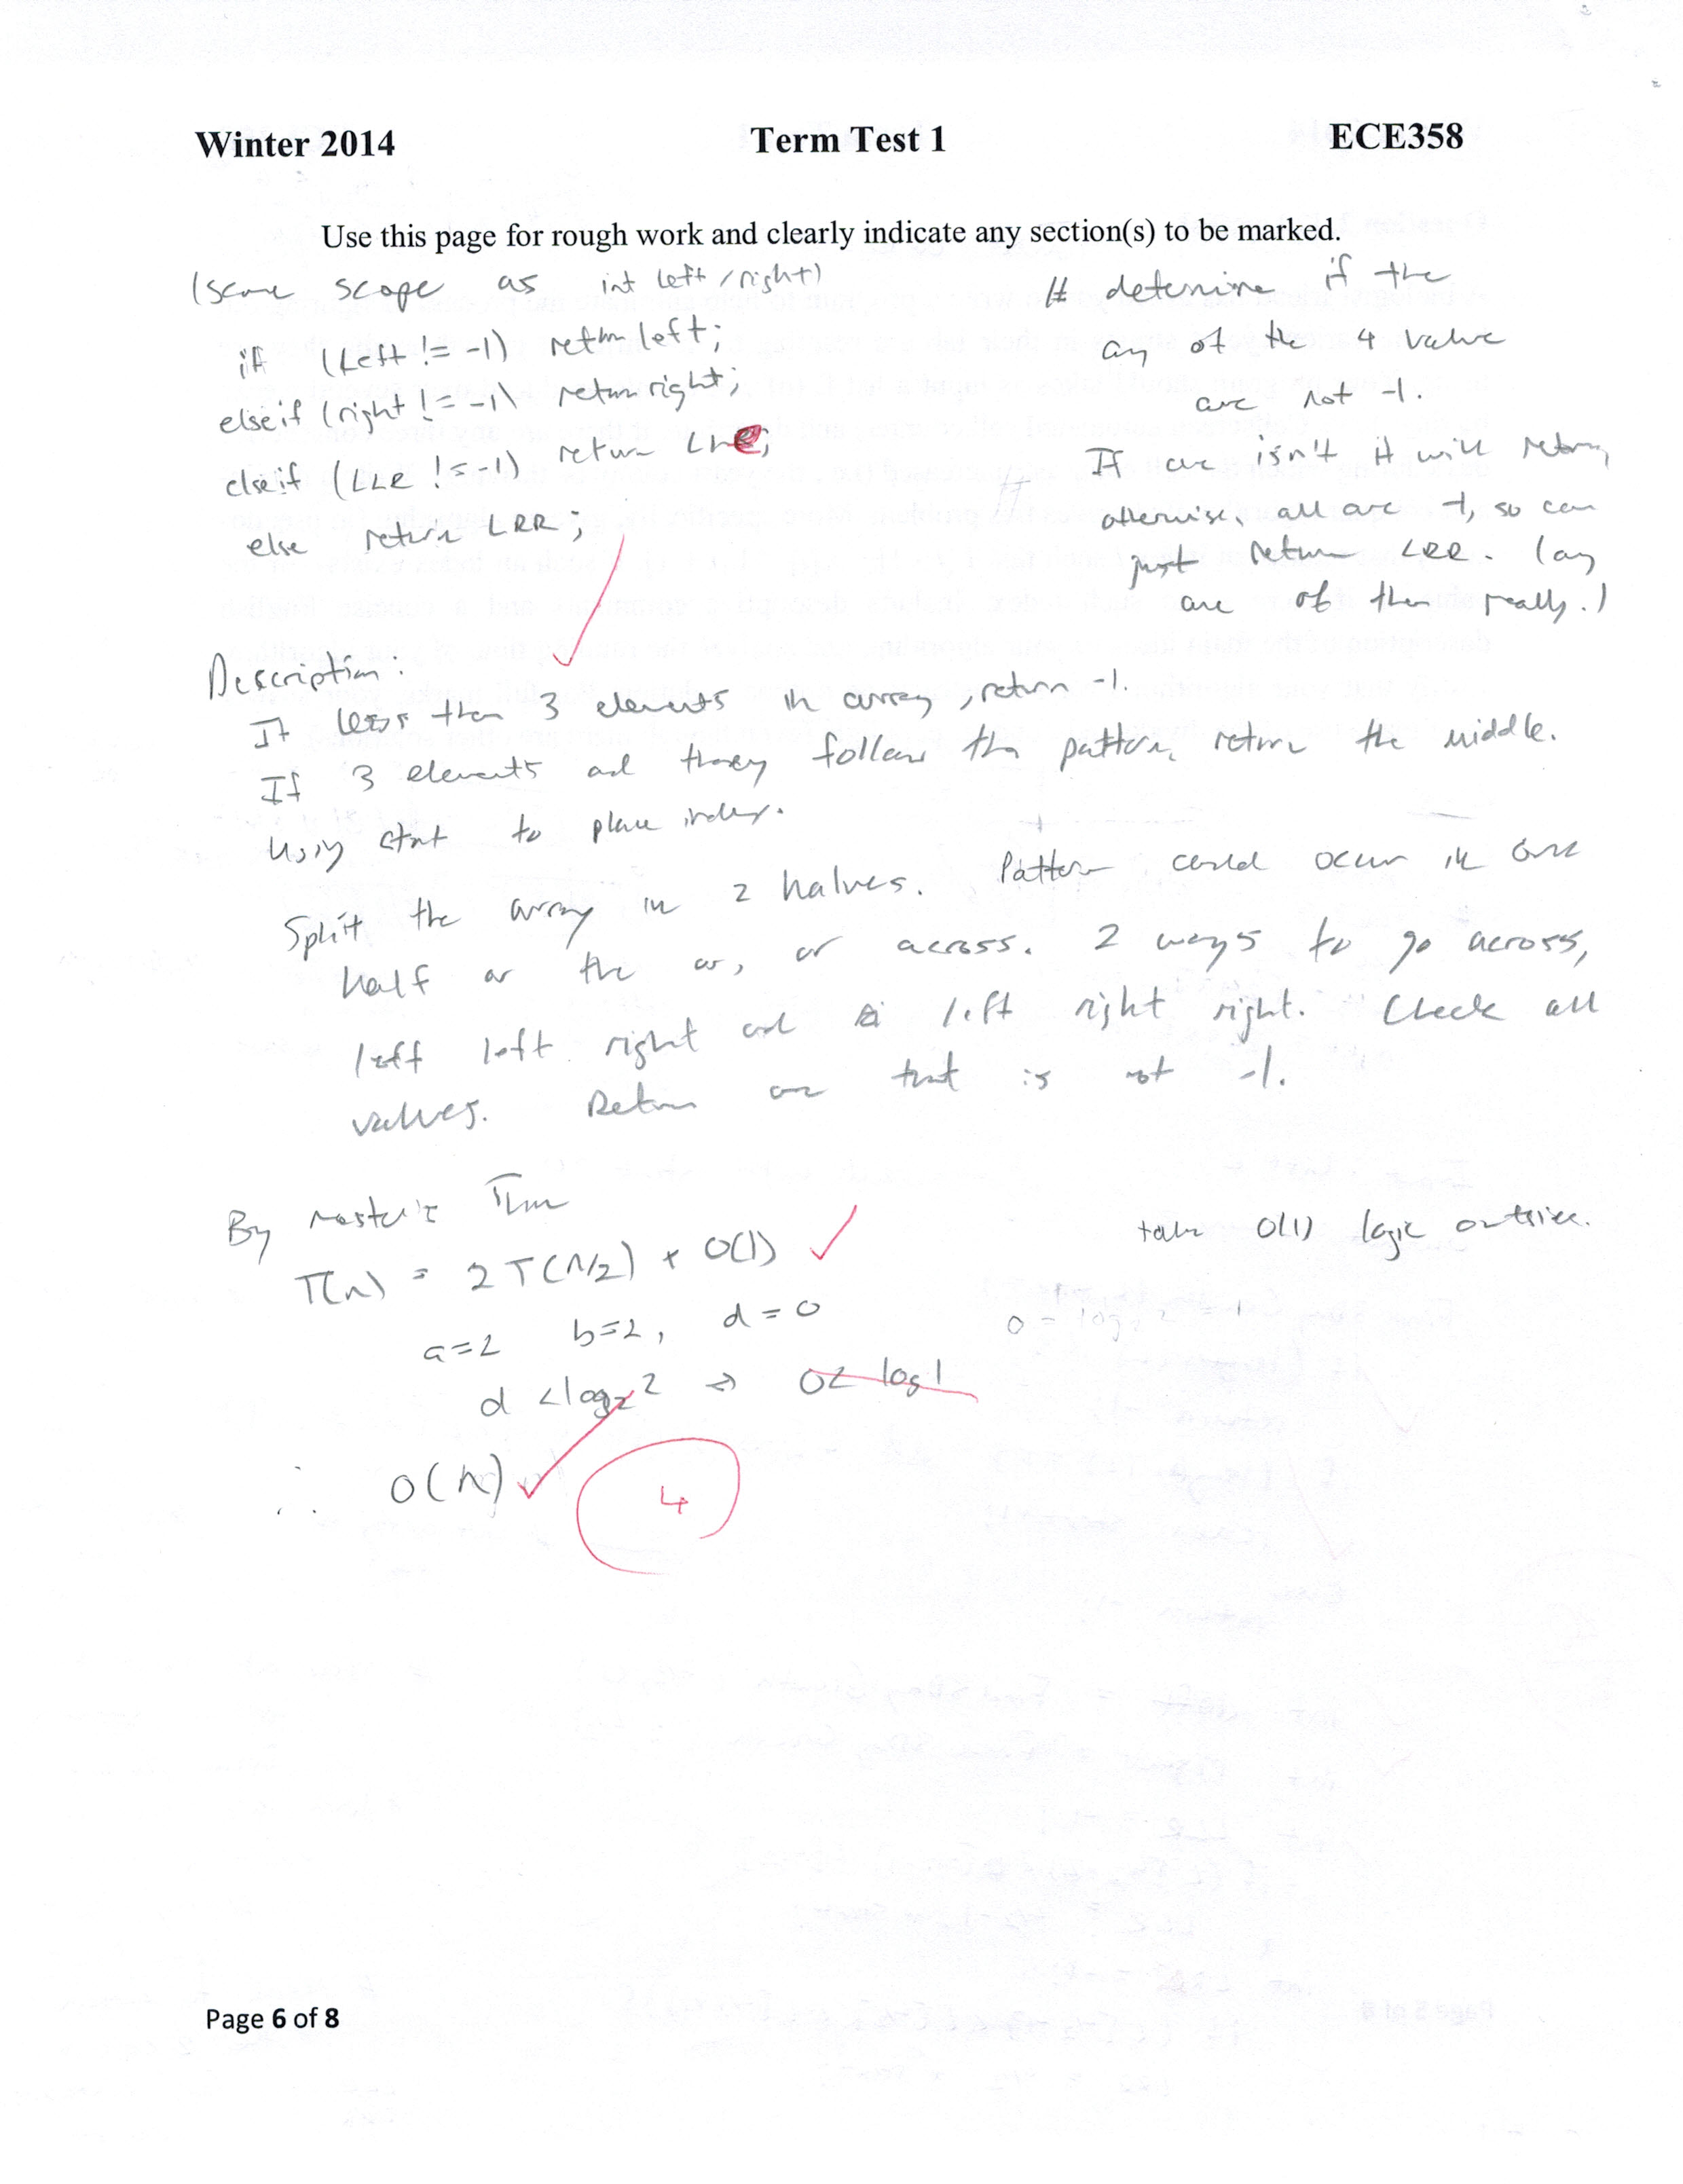 Winter 2014 Term Test 1 ECE358
Use this page for rough work and clearly indicate any section(s) to be marked.
(same scope as int left/right)
if (left != -1) return left;
else if (right != -1) return right;
else if (LLR != -1) return LLR;
else return LRR;
# determine if the
any of the 4 value
are not -1.
If one isn't it will return,
otherwise, all are -1, so can
just return LRR. (any
one of them really.)
Description:
If less than 3 elements in array, return -1.
If 3 elements and they follow the pattern, return the middle.
Using start to place index.
Split the array in 2 halves. Pattern could occur in one
half or the or, or across. 2 ways to go across,
left left right and left right right. Check all
values. Return one that is not -1.
By Master's Thm
T(n) = 2T(n/2) + O(1)
take O(1) logic outside.
a=2 b=2, d=0
0 - log₂ 2 = 1
d < log₂ 2 => 0 < log 1
∴ O(n)
4
Page 6 of 8